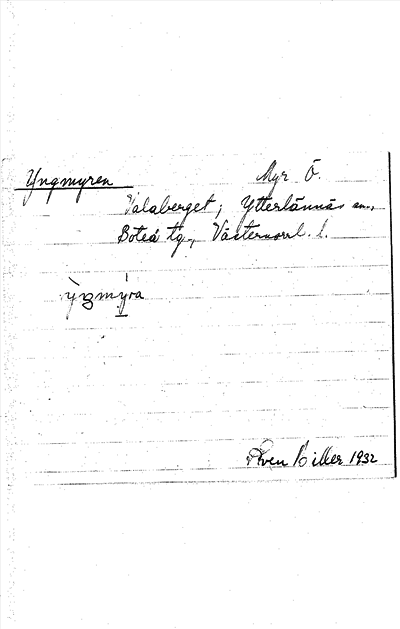 Yngmyren Myr Ö.
Valaberget; Ytterlännäs sn.,
Boteå tg., Västernorrl. l.
ỳngmýra
1932